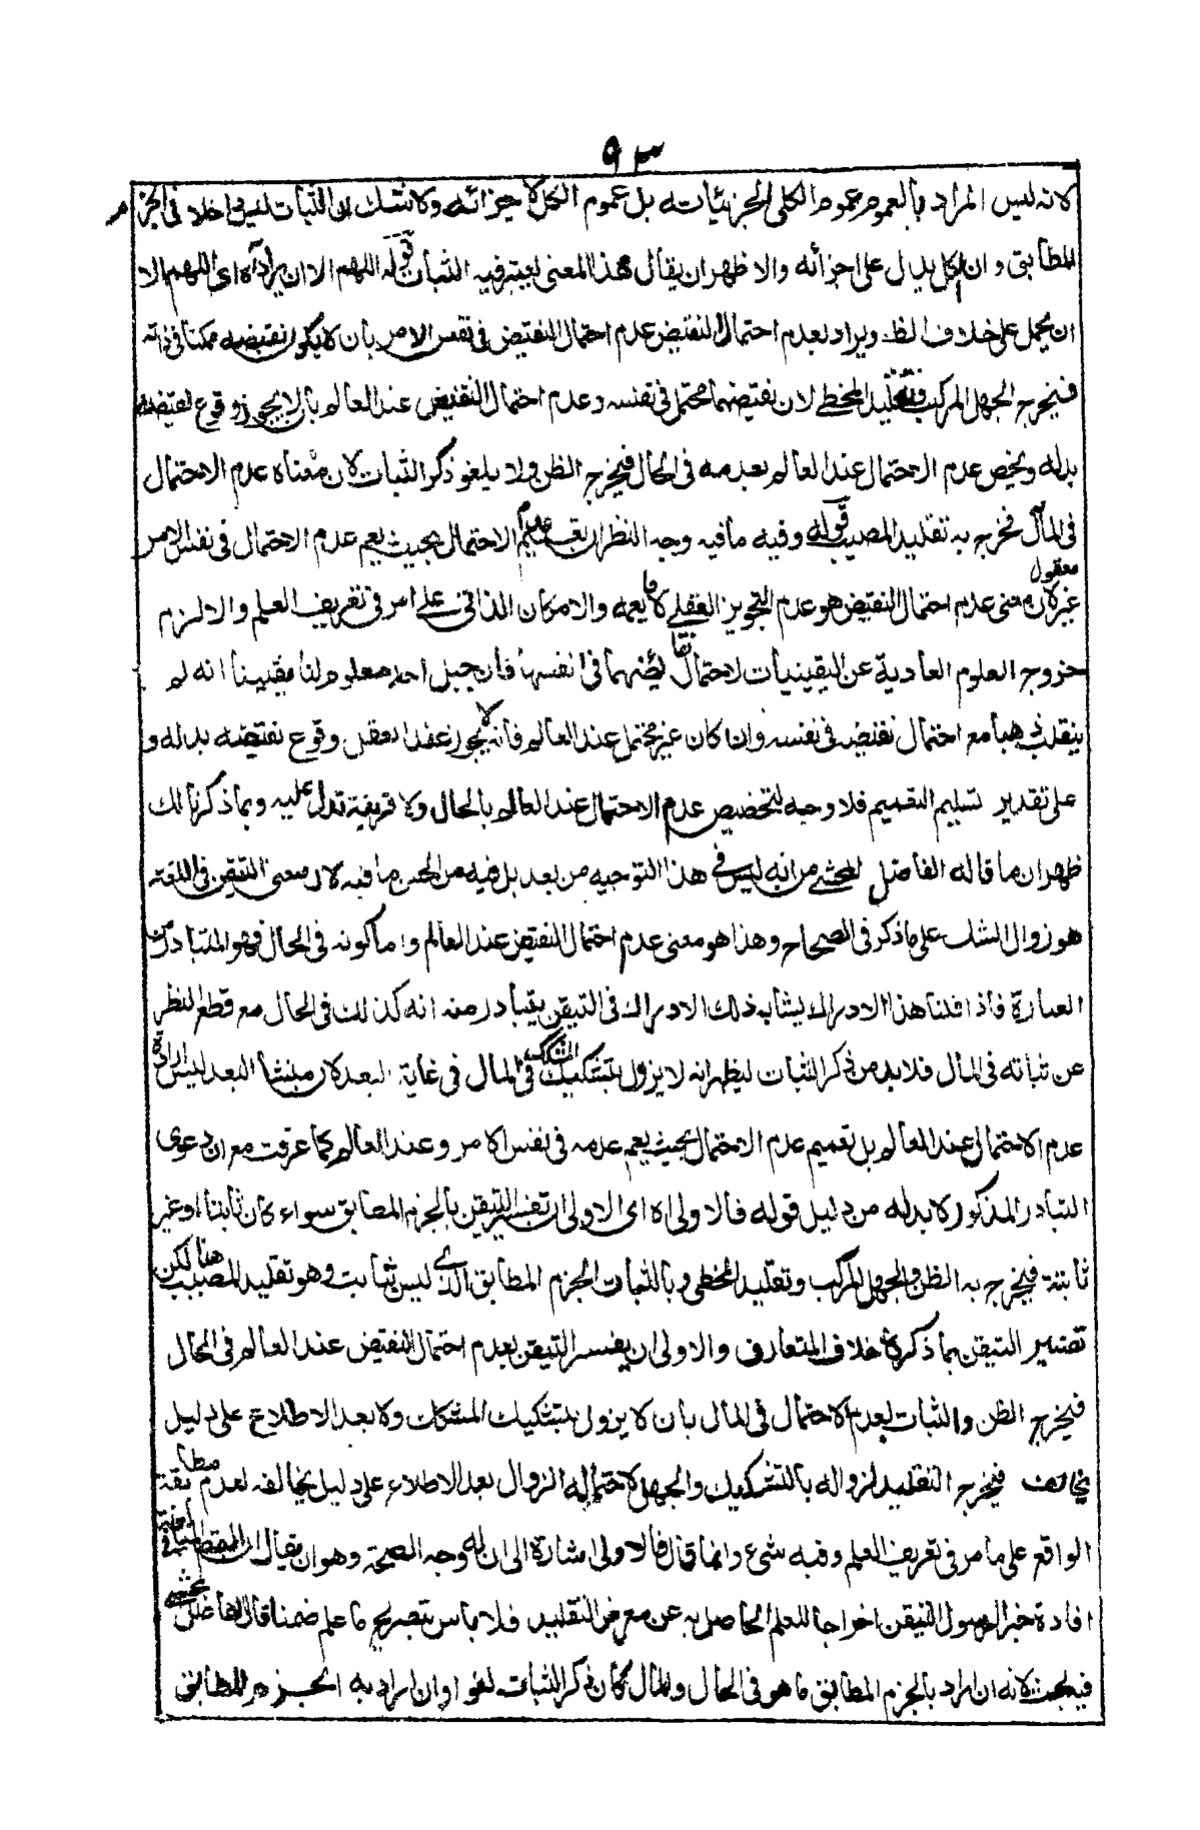 ٩٣
لانه ليس المراد بالعموم عموم الكلي الجزئياته بل عموم الكل لاجزائه ولا شك ان الثبات ليس داخلا في الجزم
المطابق وان الكل يدل على اجزائه والاظهر ان يقال هذا المعنى يعتبر فيه الثبات قوله اللهم الا ان يراد آه اى اللهم الا
ان يحمل على خلاف الظ ويراد بعدم احتمال النقيض عدم احتمال النقيض في نفس الامر بان لا يكون نقيضه ممكنا في ذاته
فيخرج الجهل المركب وتقليد المخطى لان نقيضهما محتمل في نفسه وعدم احتمال النقيض عند العالم بان لا يجوز وقوع نقيضه
بدله ويخص عدم الاحتمال عند العالم بعدمه في الحال فيخرج الظن ولا يلغو ذكر الثبات لان معناه عدم الاحتمال
في المآل فخرج به تقليد المصيب قوله وفيه ما فيه وجه النظر ان تعميم عدم الاحتمال بحيث يعم عدم الاحتمال في نفس الامر
غير معقول لان معنى عدم احتمال النقيض هو عدم التجويز العقلي لا ما يعمه والامكان الذاتي على ما مر في تعريف العلم والا لزم
خروج العلوم العادية عن اليقينيات لاحتمال نقائضها في انفسها فان جبل احد معلوم لنا يقينا انه لم
ينقلب ذهبا مع احتمال نقيضه في نفسه وان كان غير محتمل عند العالم فانه لا يجوز عند العقل وقوع نقيضه بدله و
على تقدير تسليم التعميم فلا وجه لتخصيص عدم الاحتمال عند العالم بالحال ولا قرينة تدل عليه وبما ذكرنا لك
ظهر ان ما قاله الفاضل المحشى من انه ليس في هذا التوجيه من بعد بل فيه من الحسن ما فيه لان معنى التيقن في اللغة
هو زوال الشك على ما ذكر في الصحاح وهذا هو معنى عدم احتمال النقيض عند العالم واما كونه في الحال فهو المتبادر من
العبارة فاذا قلنا هذا الادراك يشابه ذلك الادراك في التيقن يتبادر منه انه كذلك في الحال مع قطع النظر
عن ثباته في المال فلا بد من ذكر الثبات ليظهر انه لا يزول بتشكيك المشكك في المال في غاية البعد لان منشأ البعد ليس ارادة
عدم الاحتمال عند العالم بل تعميم عدم الاحتمال بحيث يعم عدمه في نفس الامر وعند العالم كما عرفت مع ان دعوى
التبادر المذكور لا بد له من دليل قوله فالاولى اه اى الاولى ان تفسر التيقن بالجزم المطابق سواء كان ثابتا او غير
ثابتة فيخرج به الظن والجهل المركب وتقليد المخطى وبالثبات الجزم المطابق الذي ليس ثابت وهو تقليد المصيب هذا لكن
تفسير التيقن بما ذكره خلاف المتعارف والاولى ان يفسر التيقن بعدم احتمال النقيض عند العالم في الحال
فيخرج الظن والثبات بعدم الاحتمال في المال بان لا يزول بتشكيك المشكك ولا بعد الاطلاع على دليل
يخالف فيخرج التقليد لزواله بالتشكيك والجهل لاحتماله الزوال بعد الاطلاع على دليل يخالفه لعدم مطابقة
الواقع على ما مر في تعريف العلم وفيه شىء وانما قال فالاولى اشارة الى ان له وجه الصحة وهو ان يقال ان المقصد المبالغة في
افادة خبر الرسول التيقن اخراجا للعلم الحاصل به عن معرض التقليد فلا باس بتصريح ما علم ضمنا قال الفاضل المحشى
فيه بحث لانه ان اراد بالجزم المطابق ما هو في الحال والمال كان ذكر الثبات لغوا وان اراد به الجزم المطابق